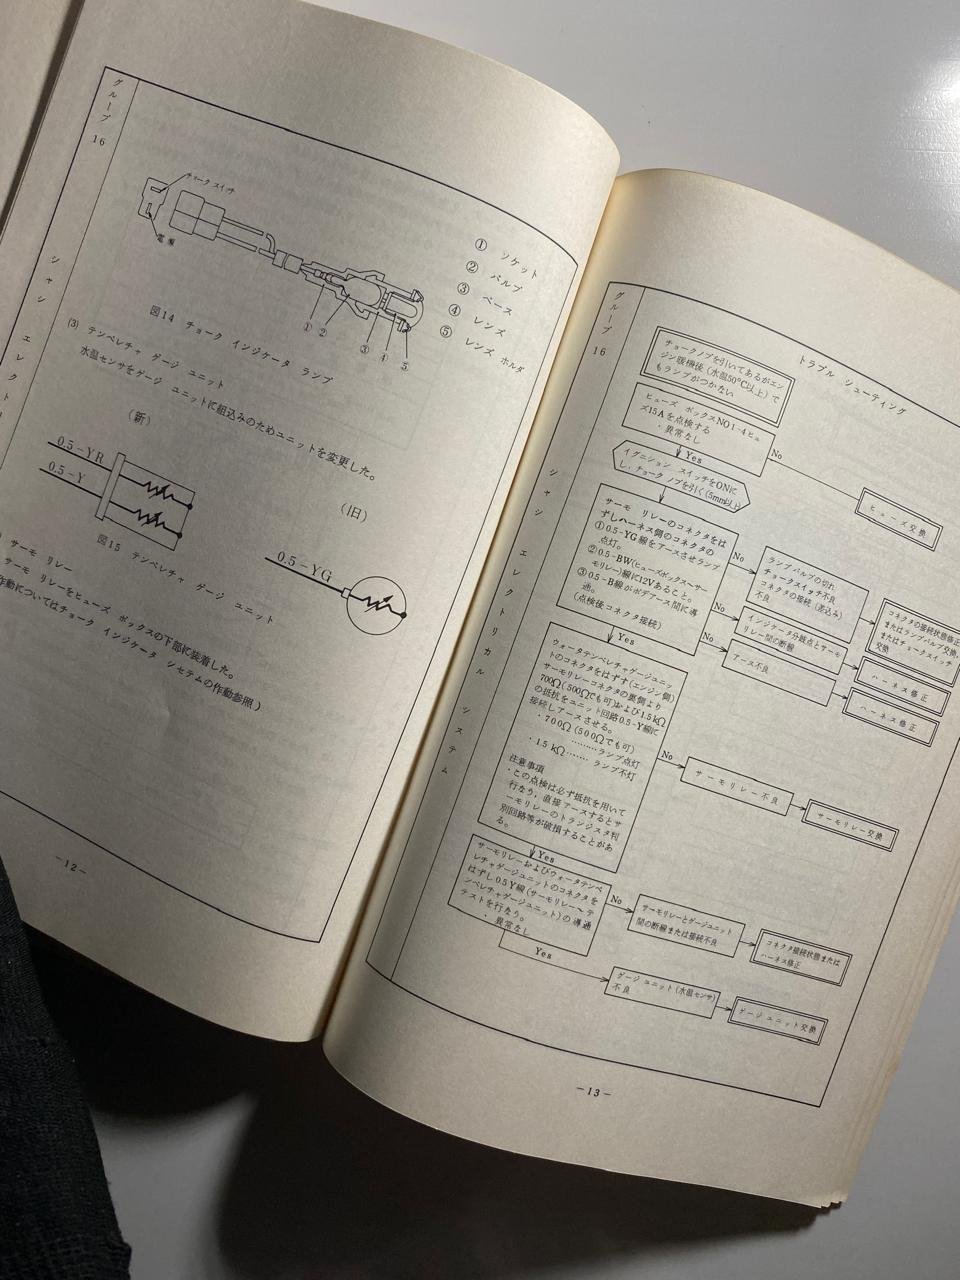 グループ 16
シャシ エレクトリ
チョーク スイッチ
電源
① ソケット
② バルブ
③ ベース
④ レンズ
⑤ レンズ ホルダ
① ② ③ ④ 5
図14 チョーク インジケータ ランプ
(3) テンペレチャ ゲージ ユニット
水温センサをゲージ ユニットに組込みのためユニットを変更した。
(新)
0.5-YR
0.5-Y
(旧)
0.5-YG
図15 テンペレチャ ゲージ ユニット
サーモ リレー
サーモ リレーをヒューズ ボックスの下部に装着した。
作動についてはチョーク インジケータ システムの作動参照)
-12-
グループ 16
シャシ エレクトリカル システム
トラブル シューティング
チョークノブを引いてあるがエン
ジン暖機後(水温50℃以上)で
もランプがつかない
ヒューズ ボックスNO1-4ヒュ
ーズ15Aを点検する
・異常なし
No
ヒューズ交換
Yes
イグニション スイッチをONに
し,チョークノブを引く(5mm以上)
サーモ リレーのコネクタをは
ずしハーネス側のコネクタの
①0.5-YG線をアースさせランプ
点灯。
②0.5-BW(ヒューズボックス〜サー
モリレー)線に12Vあること。
③0.5-B線がボデアース間に導
通。
(点検後コネクタ接続)
No
ランプバルブの切れ
チョークスイッチ不良
コネクタの接続(差込み)
不良
コネクタの接続状態修正
またはランプバルブ交換,
またはチョークスイッチ
交換
No
インジケータ分岐点とサーモ
リレー間の断線
ハーネス修正
No
アース不良
ハーネス修正
Yes
ウォータテンペレチャゲージユニッ
トのコネクタをはずす(エンジン側)
サーモリレーコネクタの裏側より
700Ω(500Ωでも可)および1.5kΩ
の抵抗をユニット回路0.5-Y線に
接続しアースさせる。
・700Ω(500Ωでも可)
………ランプ点灯
・1.5kΩ……ランプ不灯
注意事項
・この点検は必ず抵抗を用いて
行なう,直接アースするとサ
ーモリレーのトランジスタ判
別回路等が破損することがあ
る。
No
サーモリレー不良
サーモリレー交換
Yes
サーモリレーおよびウォータテンペ
レチャゲージユニットのコネクタを
はずし0.5Y線(サーモリレー〜テ
ンペレチャゲージユニット)の導通
テストを行なう。
・異常なし
No
サーモリレーとゲージユニット
間の断線または接続不良
コネクタ接続状態または
ハーネス修正
Yes
ゲージ ユニット(水温センサ)
不良
ゲージ ユニット交換
-13-